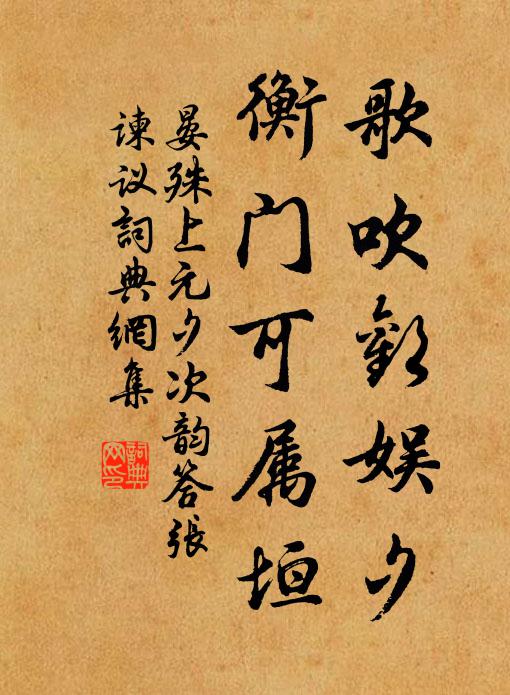 歌吹歡娱夕
衡门可属垣
晏殊上元夕次韵答張
諫议詞典網集
詞典网印